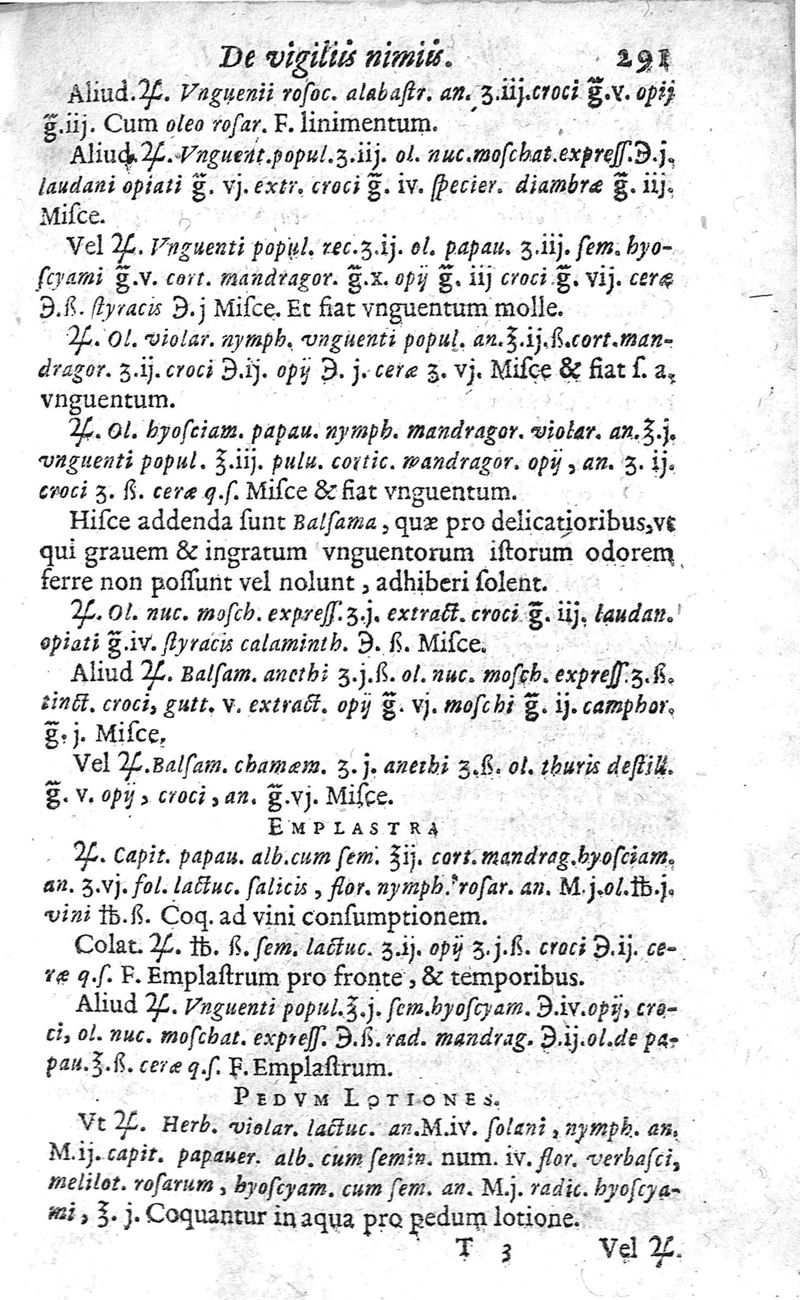 De vigiliis nimiis. 291
Aliud. ♃. Vnguenii rosoc. alabaſtr. an. ʒ.iij.croci g̃.v. opij
g̃.iij. Cum oleo roſar. F. linimentum.
Aliud. ♃. Vnguent.popul.ʒ.iij. ol. nuc.moſchat.expreſſ.℈.j.
laudani opiati g̃. vj. extr. croci g̃. iv. ſpecier. diambræ g̃. iij.
Miſce.
Vel ♃. Vnguenti popul. rec.ʒ.ij. ol. papau. ʒ.iij. ſem. hyo-
ſcyami g̃.v. cort. mandragor. g̃.x. opij g̃. iij croci g̃. vij. ceræ
℈.ß. ſtyracis ℈.j Miſce. Et fiat vnguentum molle.
♃. Ol. violar. nymph. vnguenti popul. an.℥.ij.ß.cort.man-
dragor. ʒ.ij. croci ℈.ij. opij ℈. j. ceræ ʒ. vj. Miſce & fiat ſ. a.
vnguentum.
♃. Ol. hyoſciam. papau. nymph. mandragor. violar. an.℥.j.
vnguenti popul. ℥.iij. pulu. cortic. mandragor. opij, an. ʒ. ij.
croci ʒ. ß. ceræ q.ſ. Miſce & fiat vnguentum.
Hiſce addenda ſunt Balſama, quæ pro delicatioribus,vt
qui grauem & ingratum vnguentorum iſtorum odorem
ferre non poſſunt vel nolunt, adhiberi ſolent.
♃. Ol. nuc. moſch. expreſſ.ʒ.j. extract. croci g̃. iij. laudan.
opiati g̃.iv. ſtyracis calaminth. ℈. ß. Miſce.
Aliud ♃. Balſam. anethi ʒ.j.ß. ol. nuc. moſch. expreſſ.ʒ.ß.
tinct. croci, gutt. v. extract. opij g̃. vj. moſchi g̃. ij. camphor.
g̃. j. Miſce.
Vel ♃.Balſam. chamæm. ʒ. j. anethi ʒ.ß. ol. thuris deſtill.
g̃. v. opij, croci, an. g̃.vj. Miſce.
EMPLASTRA
♃. Capit. papau. alb.cum ſem. ℥ij. cort.mandrag.hyoſciam.
an. ʒ.vj. fol. lactuc. ſalicis, flor. nymph. roſar. an. M.j.ol.℔.j.
vini ℔.ß. Coq. ad vini conſumptionem.
Colat. ♃. ℔. ß. ſem. lactuc. ʒ.ij. opij ʒ.j.ß. croci ℈.ij. ce-
ræ q.ſ. F. Emplaſtrum pro fronte, & temporibus.
Aliud ♃. Vnguenti popul.℥.j. ſem.hyoſcyam. ℈.iv.opij, cro-
ci, ol. nuc. moſchat. expreſſ. ℈.ß. rad. mandrag. ℈.ij.ol.de pa-
pau.℥.ß. ceræ q.ſ. F. Emplaſtrum.
PEDVM LOTIONES.
Vt ♃. Herb. violar. lactuc. an.M.iv. ſolani, nymph. an.
M.ij. capit. papauer. alb. cum ſemin. num. iv. flor. verbaſci,
melilot. roſarum, hyoſcyam. cum ſem. an. M.j. radic. hyoſcya-
mi, ℥. j. Coquantur in aqua pro pedum lotione.
T 3 Vel ♃.